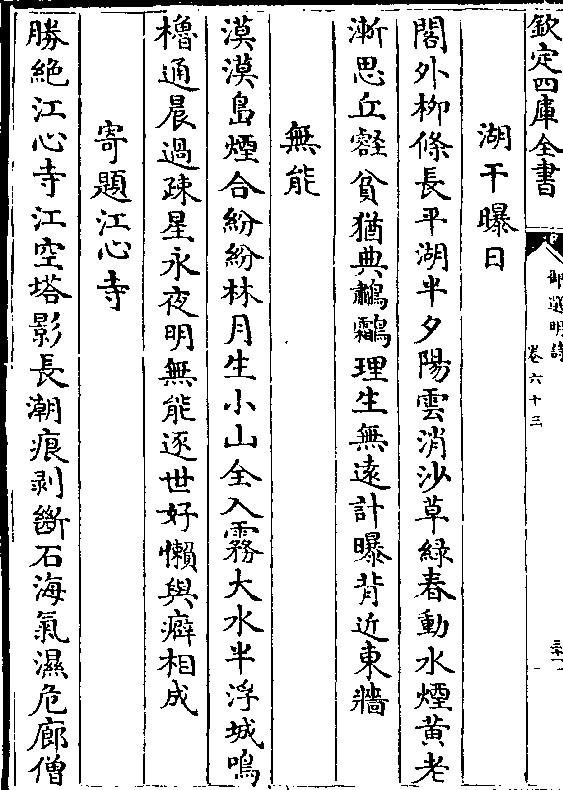 欽定四庫全書
御選明詩
卷六十三
湖干曝日
閣外栁條長平湖半夕陽雲消沙草緑春動水煙黄老
漸思丘壑貧猶典鷫鸘理生無逺計曝背近東牆
無能
漠漠島煙合紛紛林月生小山全入霧大水半浮城鳴
櫓通晨過疎星永夜明無能逐世好懶與癖相成
寄題江心寺
勝絶江心寺江空塔影長潮痕剥斷石海氣濕危廊僧